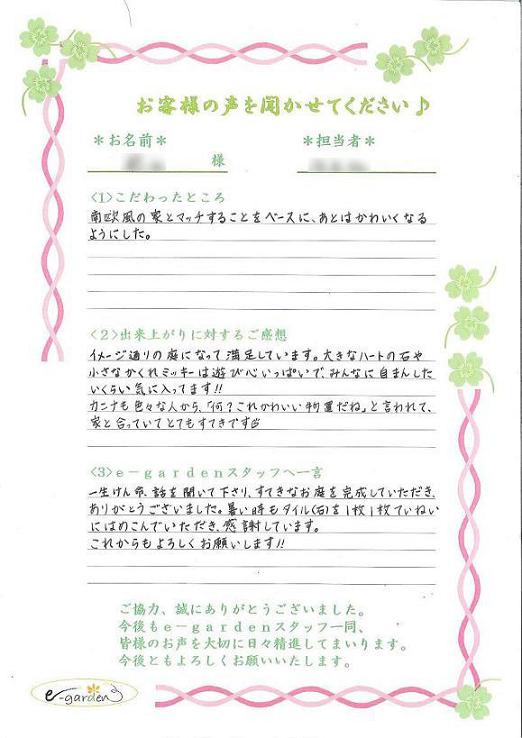 お客様の声を聞かせてください♪
＊お名前＊
＊担当者＊
様
<1>こだわったところ
南欧風の家とマッチすることをベースに、あとはかわいくなる
ようにした。
<2>出来上がりに対するご感想
イメージ通りの庭になって満足しています。大きなハートの石や
小さなかくれミッキーは遊び心いっぱいで、みんなに自まんした
いくらい気に入ってます!!
カンナも色々な人から、「何?これかわいい物置だね」と言われて、
家と合っていてとてもすてきです
<3>e－gardenスタッフへ一言
一生けん命、話を聞いて下さり、すてきなお庭を完成していただき、
ありがとうございました。暑い時もタイル(石)を1枚1枚ていねい
にはめこんでいただき、感謝しています。
これからもよろしくお願いします!!
ご協力、誠にありがとうございました。
今後もe－gardenスタッフ一同、
皆様のお声を大切に日々精進してまいります。
今後ともよろしくお願いいたします。
e-garden